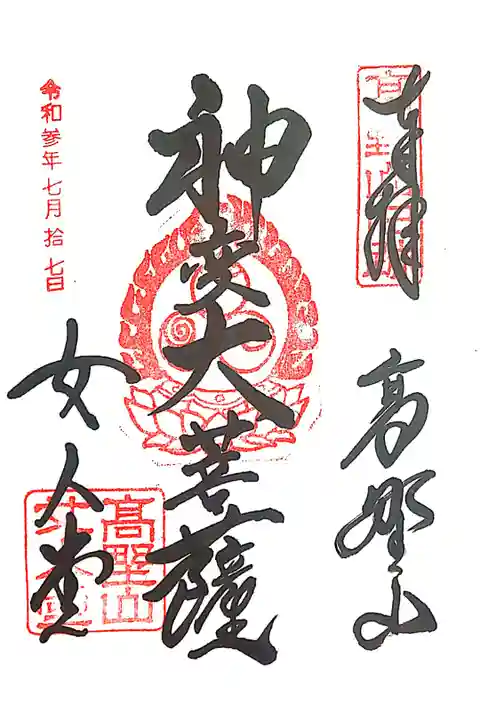 奉拝
高野山
神変大菩薩
女人堂
令和参年七月拾七日
高野山
女人堂